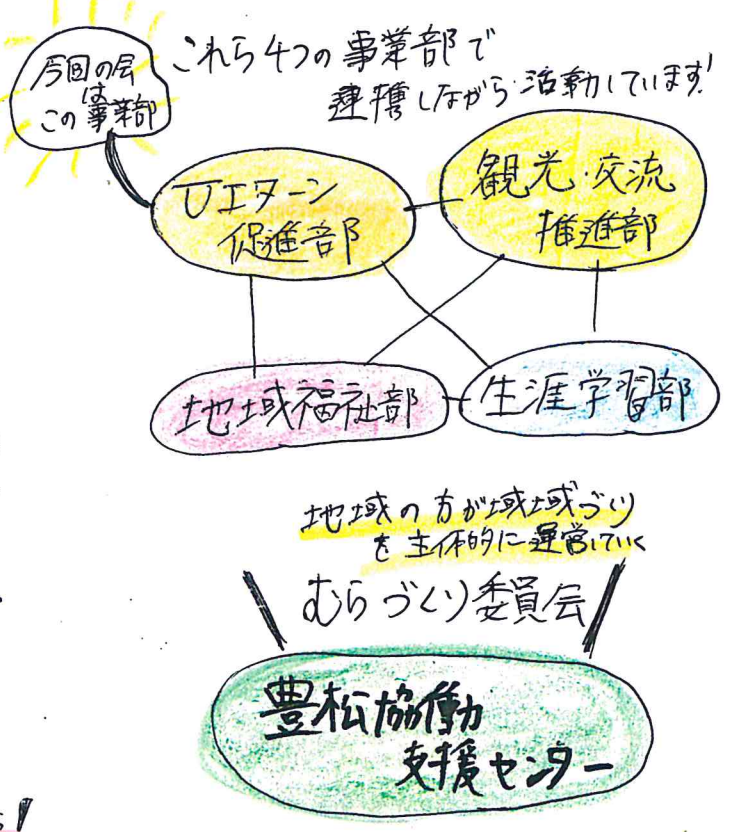 今回の会
は
この事業部
これら4つの事業部で
連携しながら活動しています!
UIターン
促進部
観光・交流
推進部
地域福祉部
生涯学習部
地域の方が域域づくり
を主体的に運営していく
むらづくり委員会
豊松協働
支援センター